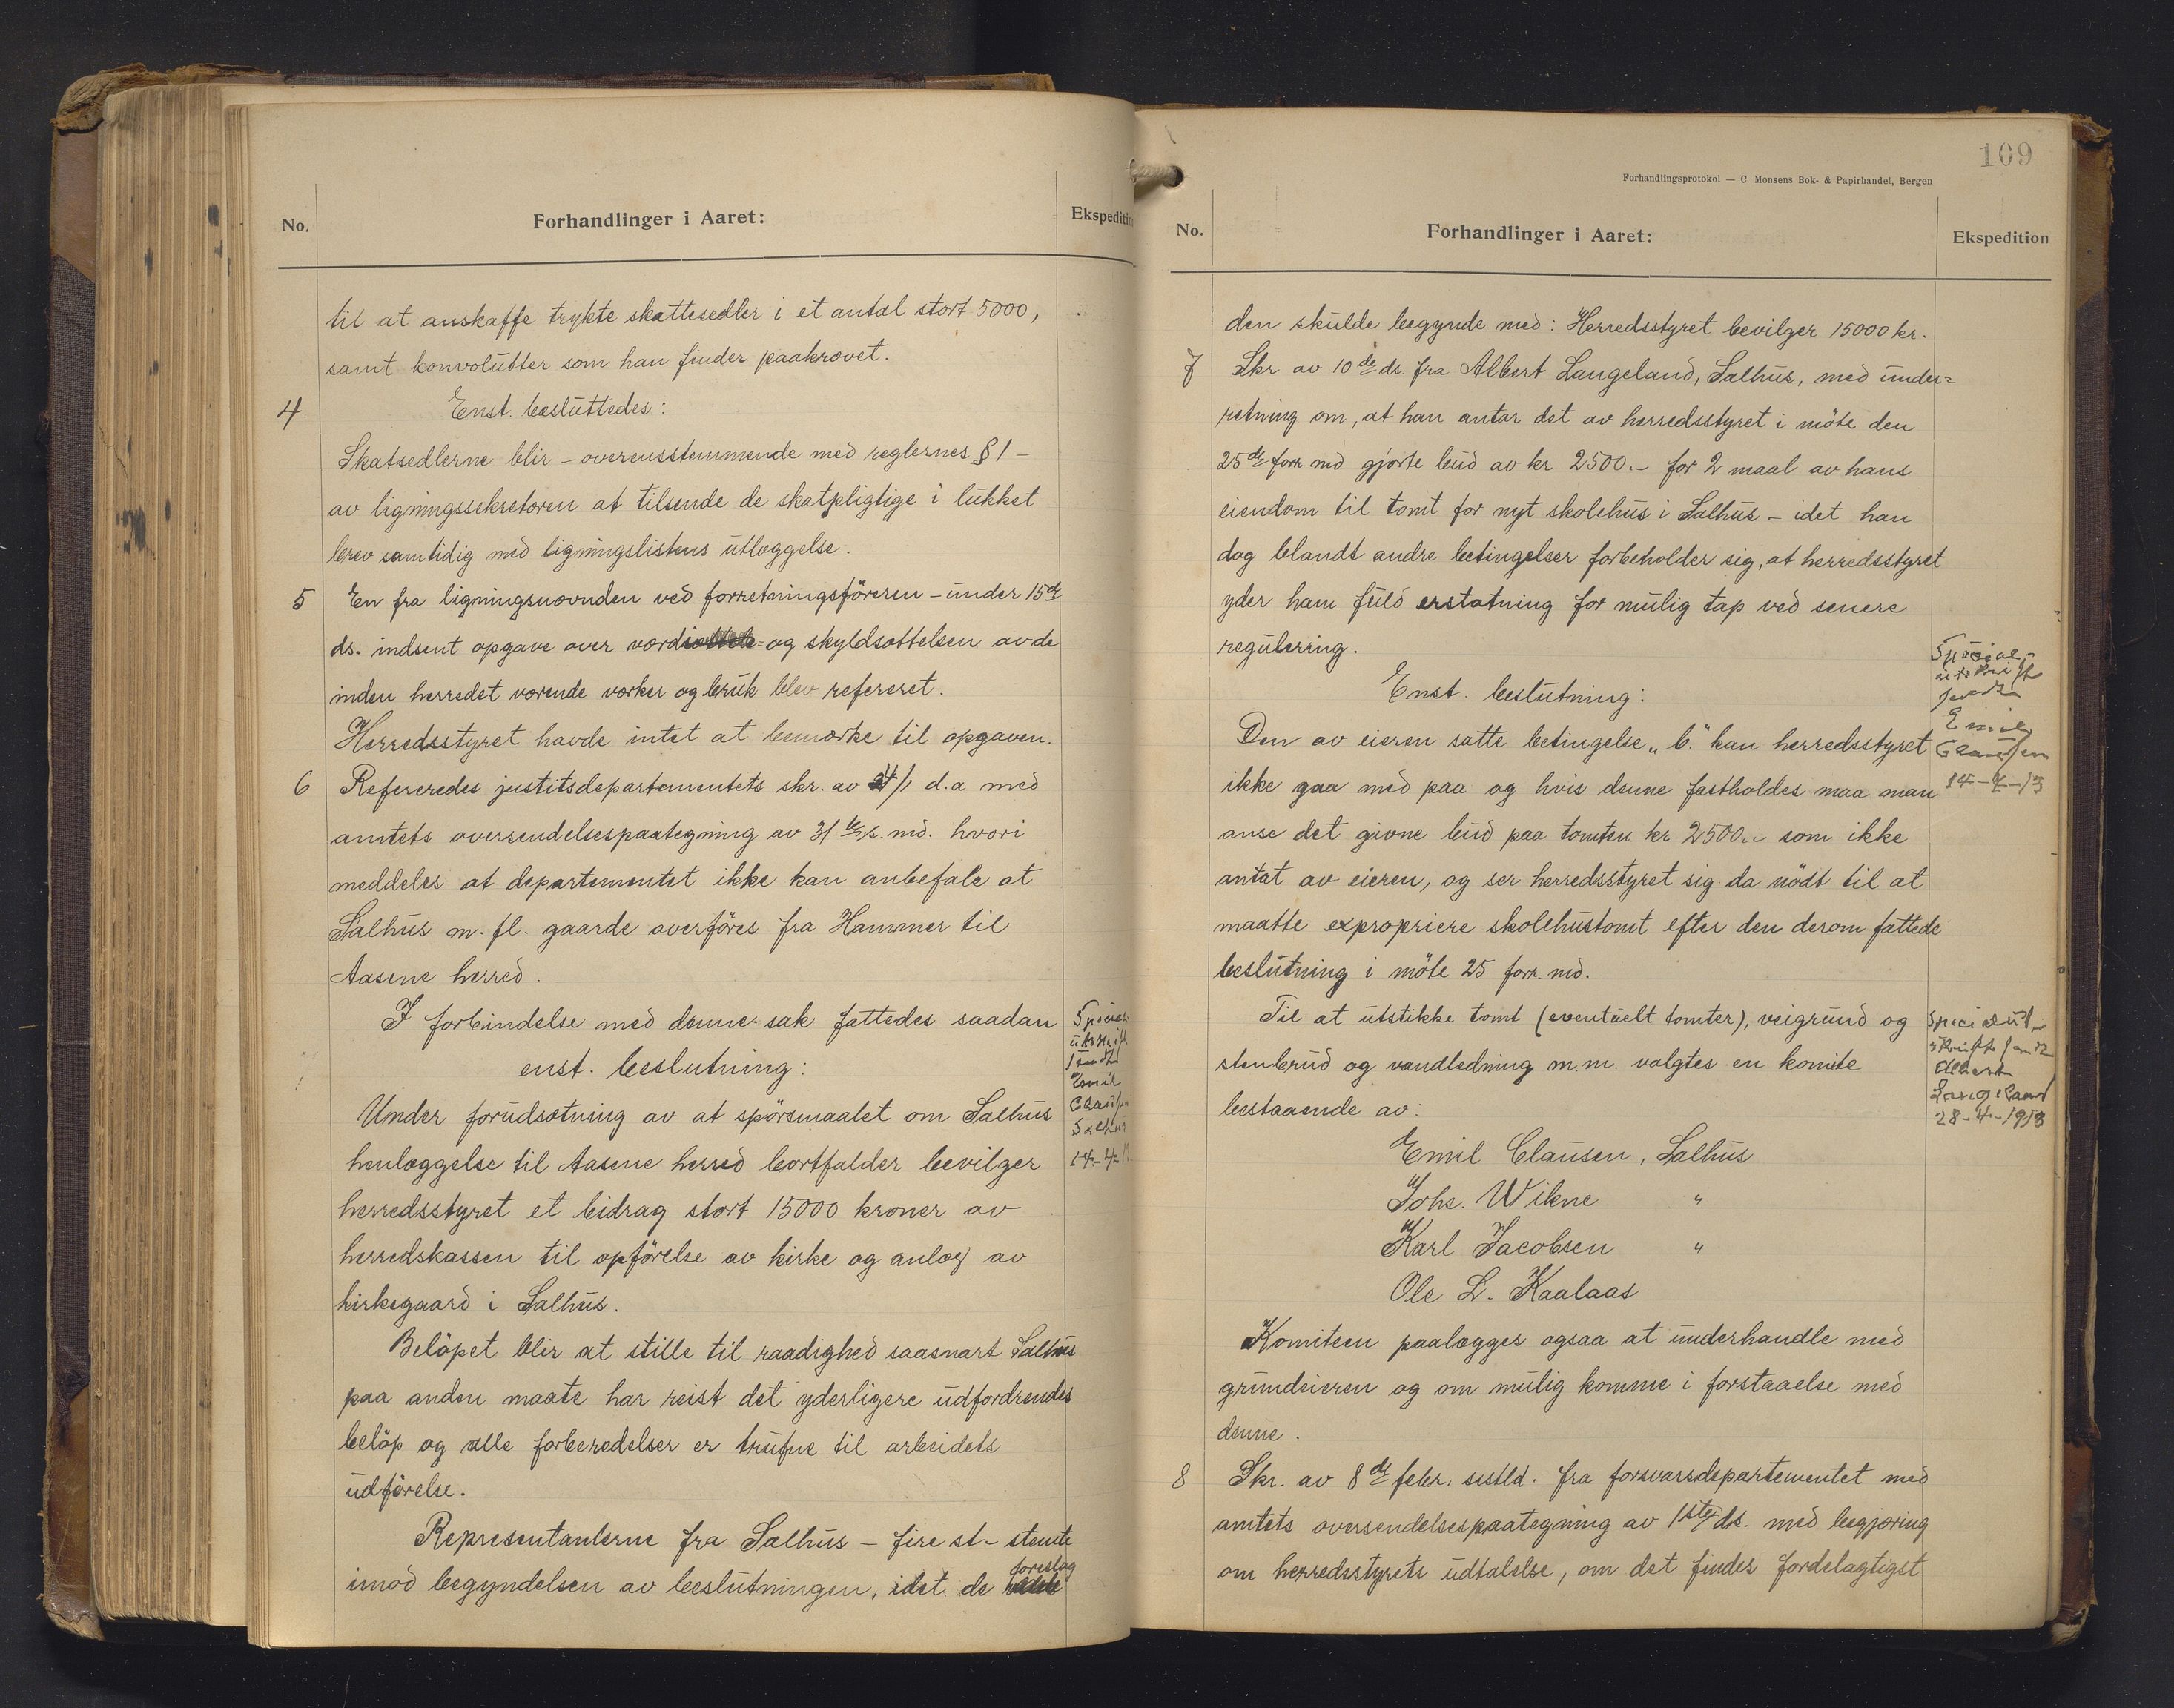 No.
Forhandlinger i Aaret:
Ekspedition
til at anskaffe trykte skattesedler i et antal stort 5000,
samt konvolutter som han finder paakrævet.
4 Enst. besluttedes:
Skatsedlerne blir – overensstemmende med reglernes § 1 –
av ligningssekretæren at tilsende de skatpligtige i lukket
brev samtidig med ligningslistens utlæggelse.
5 En fra ligningsnævnden ved forretningsföreren – under 15de
ds. indsent opgave over værdi og skyldsættelsen av de
inden herredet værende værker og bruk blev referert.
Herredsstyret havde intet at bemærke til opgaven.
6 Refereredes justitsdepartementets skr. av 24/1 d.a med
amtets oversendelsespaategning av 31te s. md. hvori
meddeles at departementet ikke kan anbefale at
Salhus m. fl. gaarde overföres fra Hammer til
Aasene herred.
I forbindelse med denne sak fattedes saadan
enst. beslutning:
Under forudsætning av at spörsmaalet om Salhus
henlæggelse til Aasene herred bortfalder bevilger
herredsstyret et bidrag stort 15000 kroner av
herredskassen til opförelse av kirke og anlæg av
kirkegaard i Salhus.
Belöpet blir at stille til raadighed saasnart Salhus
paa anden maate har reist det yderligere udfordrendes
belöp og alle forberedelser er trufne til arbeidets
udförelse.
Representanterne fra Salhus – fire st – stemte
imod begyndelsen av beslutningen, idet de foreslog
utskrift
sendt
Emil
14-4-
109
Forhandlingsprotokol — C. Monsens Bok- & Papirhandel, Bergen
No.
Forhandlinger i Aaret:
Ekspedition
den skulde begynde med: Herredsstyret bevilger 15000 kr.
7 Skr av 10de ds. fra Albert Langeland, Salhus, med under=
retning om, at han antar det av herredsstyret i möte den
25de forr. md gjorte bud av kr 2500.– for 2 maal av hans
eiendom til tomt for nyt skolehus i Salhus – idet han
dog blandt andre betingelser forbeholder sig, at herredsstyret
yder ham fuld erstatning for mulig tap ved senere
regulering.
Enst. beslutning:
Den av eieren satte betingelse „b." kan herredsstyret
ikke gaa med paa og hvis denne fastholdes maa man
anse det givne bud paa tomten kr 2500.– som ikke
antat av eieren, og ser herredsstyret sig da nödt til at
maatte expropriere skolehustomt efter den derom fattede
beslutning i möte 25 forr. md.
Til at utstikke tomt (eventuelt tomter), veigrund og
stenbrud og vandledning m.m. valgtes en komite
bestaaende av:
Emil Clausen, Salhus
Johs. Wikne "
Karl Jacobsen "
Ole L. Kaalaas
Komiteen paalægges ogsaa at underhandle med
grundeieren og om mulig komme i forstaaelse med
denne.
8 Skr. av 8de febr. sistld. fra forsvarsdepartementet med
amtets oversendelsespaategning av 1ste ds. med begjæring
om herredsstyrets udtalelse, om det findes fordelagtigst
Special-
utskrift
sendt
Emil
Clausen
14-4-13
Specialut-
skrift sendt
Albert
Langeland
28-4-1913